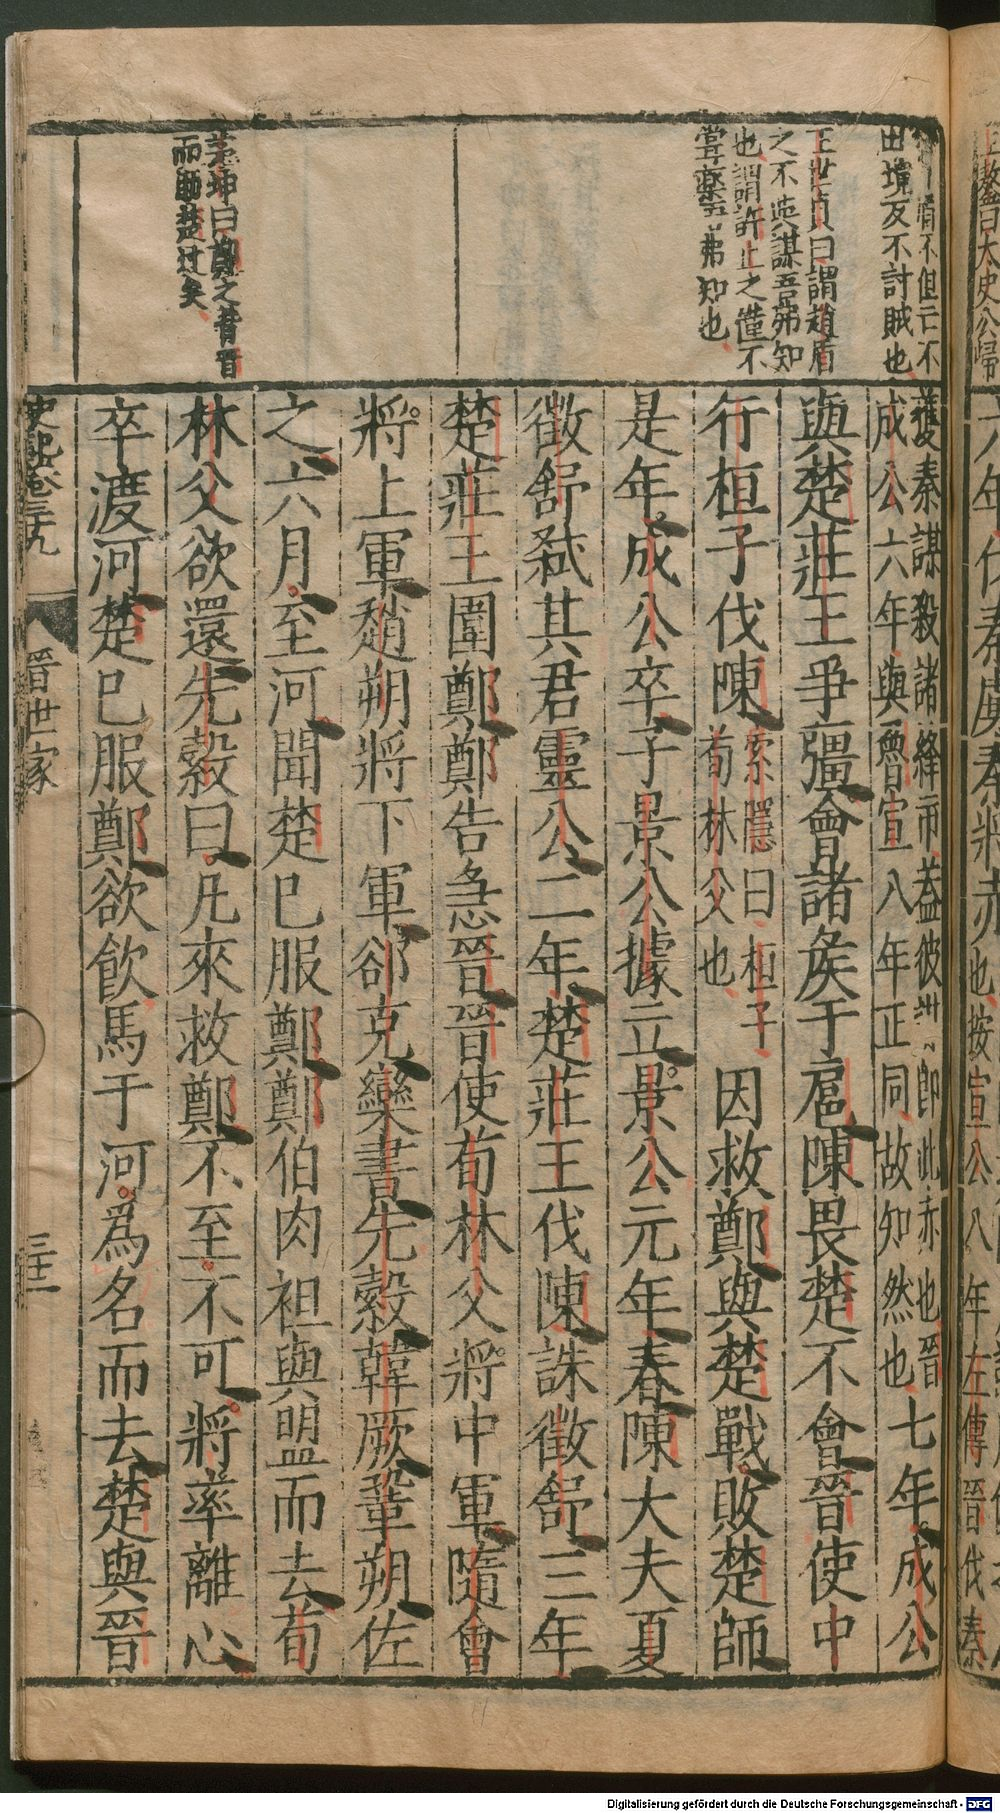 王鏊曰太史公歸
六年伐秦虜秦將赤也按宣公八年左傳晉伐秦
情不但云不
出境反不討賊也
王世貞曰謂趙盾
之不與謀吾弗知
也謂許止之僅不
嘗藥吾弗知也
茅坤曰鄭之背晉
而師楚過矣
獲秦謀殺諸絳市蓋彼即此赤也晉
成公六年與魯宣八年正同故知然也七年成公
與楚莊王爭彊會諸侯于扈陳畏楚不會晉使中
行桓子伐陳索隱曰桓子荀林父也因救鄭與楚戰敗楚師
是年成公卒子景公據立景公元年春陳大夫夏
徵舒弒其君靈公二年楚莊王伐陳誅徵舒三年
楚莊王圍鄭鄭告急晉晉使荀林父將中軍隨會
將上軍趙朔將下軍郤克欒書先縠韓厥鞏朔佐
之六月至河聞楚已服鄭鄭伯肉袒與盟而去荀
林父欲還先縠曰凡來救鄭不至不可將率離心
卒渡河楚已服鄭欲飲馬于河爲名而去楚與晉
史記卷三十九
晉世家
Digitalisierung gefördert durch die Deutsche Forschungsgemeinschaft - DFG